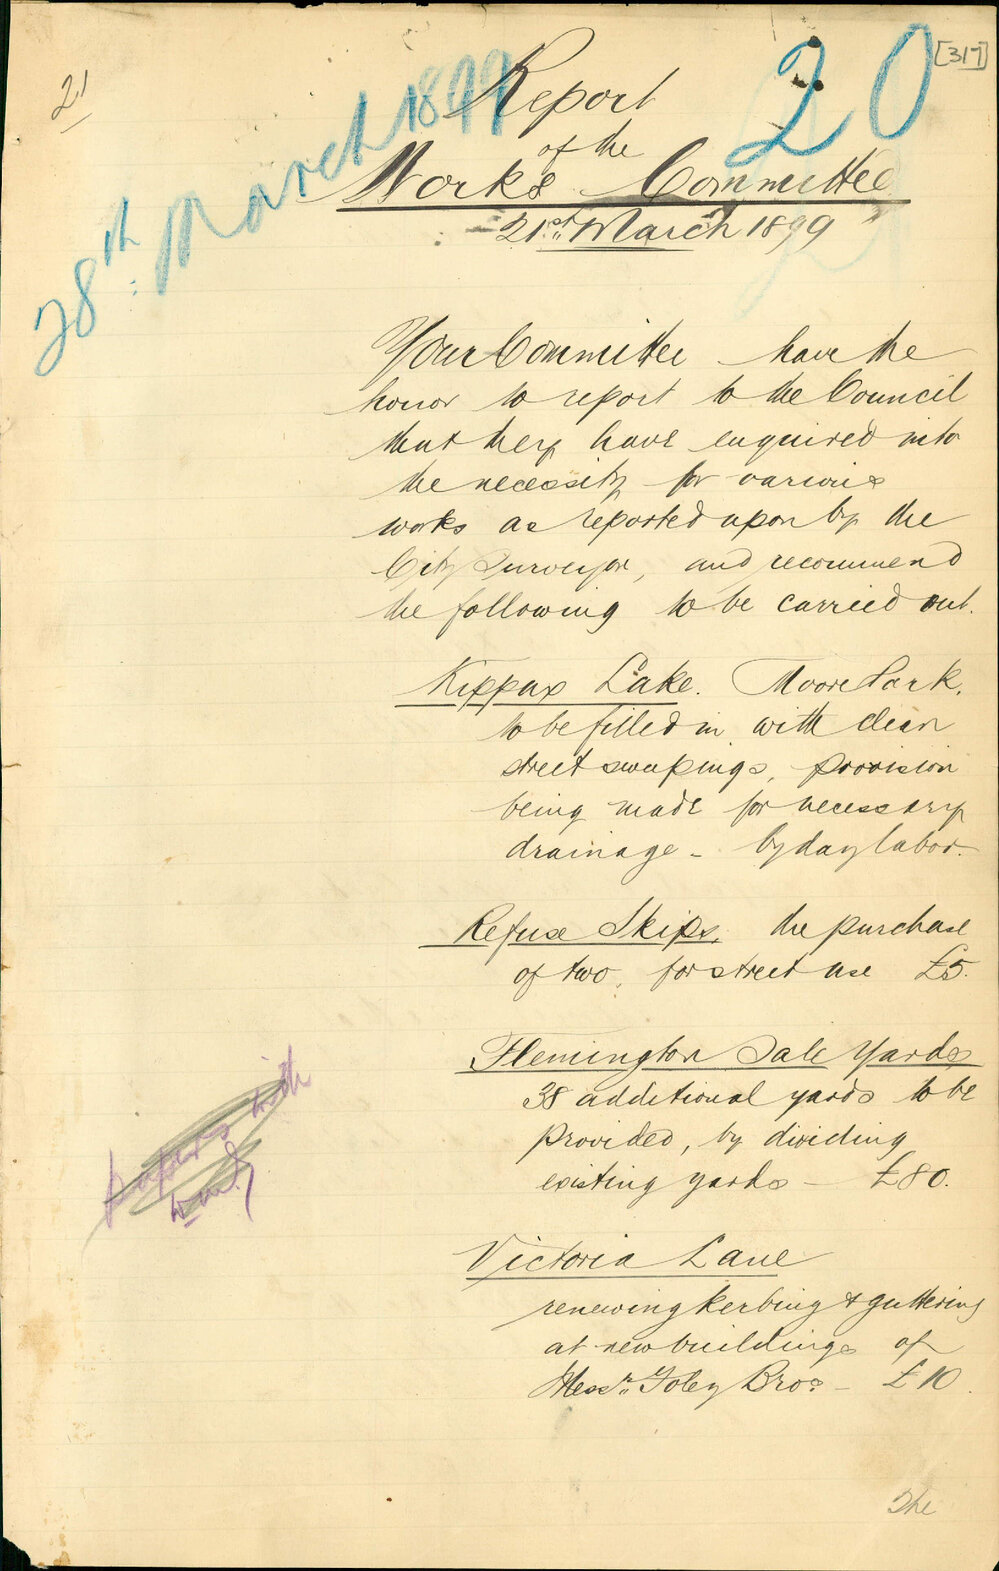 21
28th. March 1899
20
[317]
Report
of the
Works Committee
21st. March 1899
Your Committee have the
honor to report to the Council
that they have enquired into
the necessity for various
works as reported upon by the
City Surveyor, and recommend
the following to be carried out.
Kippax Lake. Moore Park,
to be filled in with clean
street sweepings, provision
being made for necessary
drainage - by day labor.
Refuse Skips, the purchase
of two, for street use £5.
Flemington Sale Yards
38 additional yards to be
provided, by dividing
existing yards - £80.
Victoria Lane
renewing kerbing & guttering
at new buildings of
Messrs. Foley Bros. - £10.
papers with
The